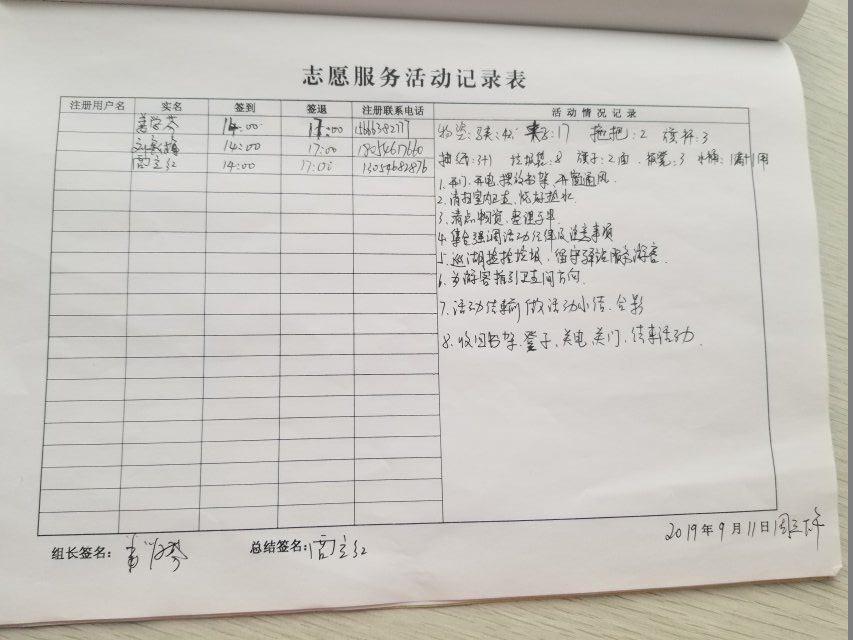 志愿服务活动记录表
注册用户名 实名 签到 签退 注册联系电话 活动情况记录
14:00 17:00
14:00 17:00 18054617660
14:00 17:00 13054682876
:17 拖把:2 :3
抽纸:3+1 垃圾袋:8 旗子:2面 :3 水桶:1满+1用
1.开门、开电、摆放书架、开窗通风
2.清扫室内卫生、烧好热水
3.清点物资、整理
4.集合强调活动纪律及注意事项
5.巡湖捡拾垃圾、留守驿站服务游客.
6.为游客指引卫生间方向.
7.活动结束前做活动小结、合影
8.收回书架、凳子、关电、关门、结束活动.
2019年9月11日周三下午
组长签名: 总结签名: